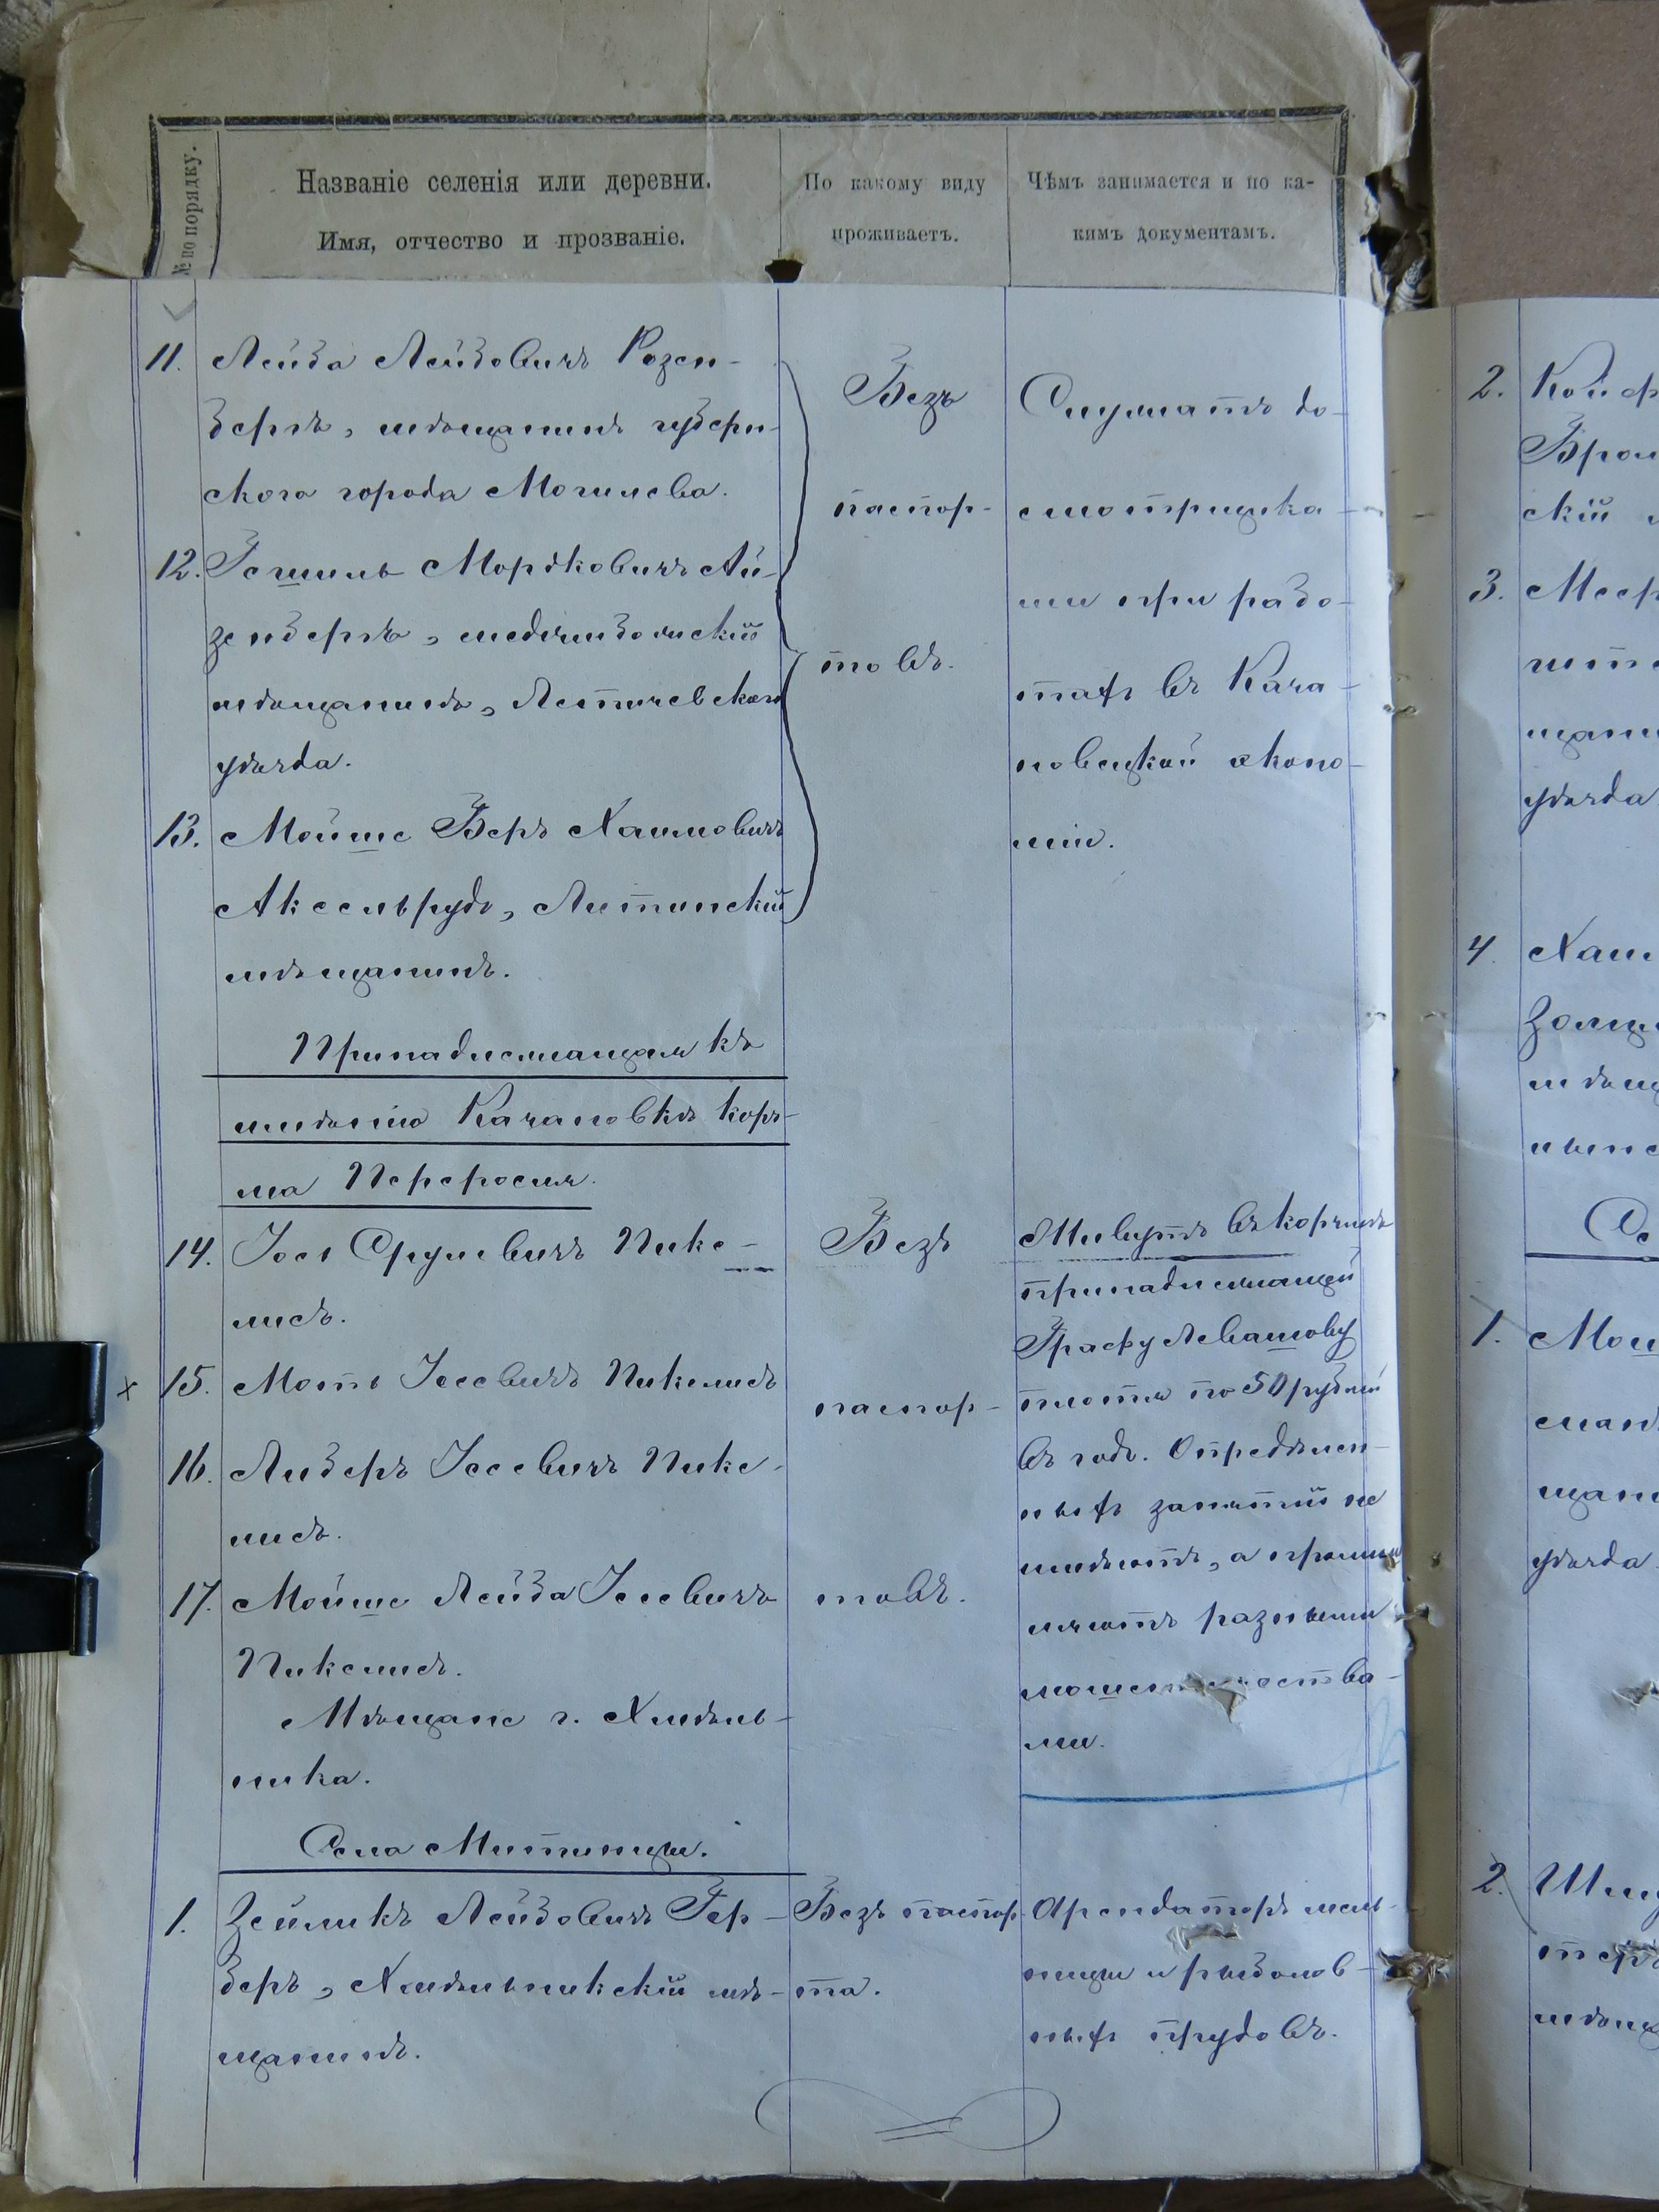 № по порядку.
Названіе селенія или деревни.
Имя, отчество и прозваніе.
По какому виду
проживаетъ.
Чѣмъ занимается и по ка-
кимъ документамъ.
11. Лейба Лейбовичъ Розен-
бергъ, мѣщанинъ губерн-
скаго города Могилева.
12. Гершль Мордковичъ Ай-
зенбергъ, меджибожскій
мѣщанинъ, Летичевскаго
уѣзда.
13. Мойше Беръ Хаимовичъ
Аксельрудъ, Литинскій
мѣщанинъ.
Безъ
паспор-
товъ.
Служатъ до-
смотрщика-
ми при рабо-
тахъ въ Кача-
новецкой эконо-
міи.
Принадлежащая къ
имѣнію Качановкѣ корч-
ма Переросля.
14. Іось Срулевичъ Пике-
лисъ.
15. Моть Іосевичъ Пикелисъ
16. Либеръ Іосевичъ Пике-
лисъ.
17. Мойше Лейба Іосевичъ
Пикелисъ.
Мѣщане г. Хмѣль-
ника.
Безъ
паспор-
товъ.
Живутъ въ корчмѣ
принадлежащей
Графу Левашову
платя по 50 рублей
въ годъ. Опредѣлен-
ныхъ занятій не
имѣютъ, а промы-
шляютъ разными
мошенничества-
ми.
Села Митинцы.
1. Зейликъ Лейбовичъ Гер-
беръ, Хмѣльникскій мѣ-
щанинъ.
Безъ паспор-
та.
Арендаторъ мель-
ницы и рыболов-
ныхъ прудовъ.
2.
3.
уѣзда
4.
1.
уѣзда
2.